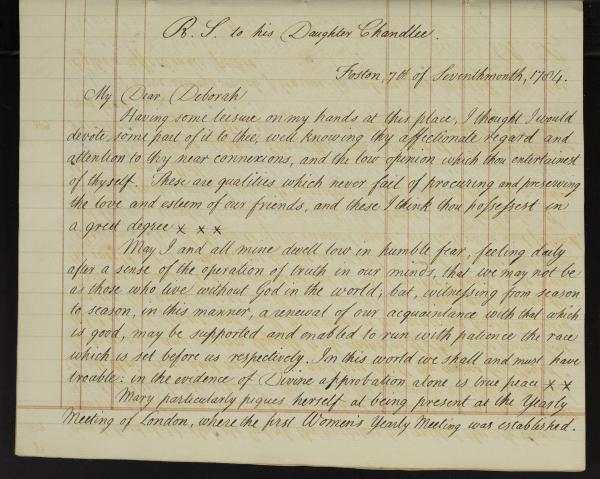 R. S. to his Daughter Chandlee.
Foston, 7th of Seventhmonth, 1784.
My Dear Deborah
Having some leisure on my hands at this place, I thought I would
devote some part of it to thee, well knowing thy affectionate regard and
attention to thy near connexions, and the low opinion which thou entertainest
of thyself. These are qualities which never fail of procuring and preserving
the love and esteem of our friends, and these I think thou possessest in
a great degree x x x
May I and all mine dwell low in humble fear, feeling daily
after a sense of the operation of truth in our minds, that we may not be
as those who live without God in the world; but, witnessing from season
to season, in this manner, a renewal of our acquaintance with that which
is good, may be supported and enabled to run with patience the race
which is set before us respectively. In this world we shall and must have
trouble: in the evidence of Divine approbation alone is true peace x x
Mary particularly piques herself at being present at the Yearly
Meeting of London, where the first Women's Yearly Meeting was established.